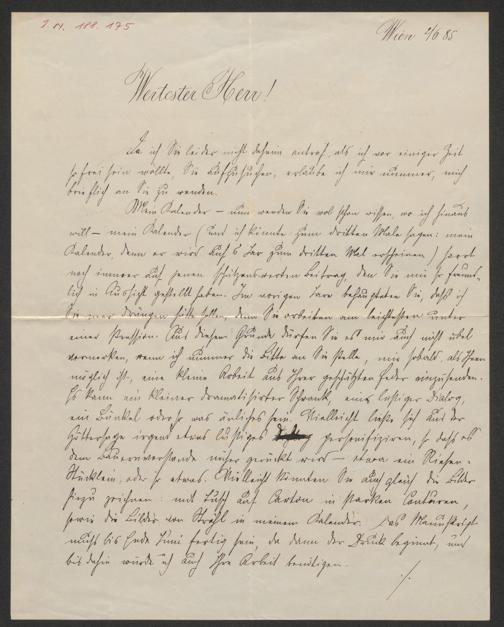 I.N. 188.175
Wien 2/6 85
Wertester Herr!
Da ich Sie leider nicht daheim antraf, als ich vor einiger Zeit
so frei sein wollte, Sie aufzusuchen, erlaube ich mir nunmer, mich
brieflich an Sie zu wenden.
Mein Kalender – nun werden Sie wol schon wissen, wo ich hinaus
will – mein Kalender (und ich könnte zum dritten Male sagen: mein
Kalender, denn er wird auf's Jar zum dritten Mal erscheinen) harrt
noch immer auf jenen schätzenswerten Beitrag, den Sie mir so freund-
lich in Aussicht gestellt haben. Im vorigen Jare behaupteten Sie, daß ich
Sie mer drängen hätte sollen, denn Sie arbeiten am leichtesten unter
einer Pression. Aus diesem Grunde dürfen Sie es mir auch nicht übel
vermerken, wenn ich nunmer die Bitte an Sie stelle, mir sobald als Ihnen
möglich ist, eine kleine Arbeit aus Ihrer geschätzten Feder einzusenden.
Es kann ein kleiner dramatisirter Schwank, ein lustiger Dialog,
ein Bänkel oder so was änliches sein. Vielleicht ließe sich aus der
Göttersage irgend etwas lustiges personifiziren, so daß es
dem Bauernverstande näher gerückt wird – etwa ein Riesen-
Stücklein, oder so etwas. Vielleicht könnten Sie auch gleich die Bilder
hiezu zeichnen: mit Tusch auf Carton in starken Conturen,
sowie die Bilder von in meinem Kalender. Das Manuskript
müßte bis Ende Juni fertig sein, da dann der Druck beginnt, und
bis dahin würde ich auch Ihre Arbeit benötigen.
./.